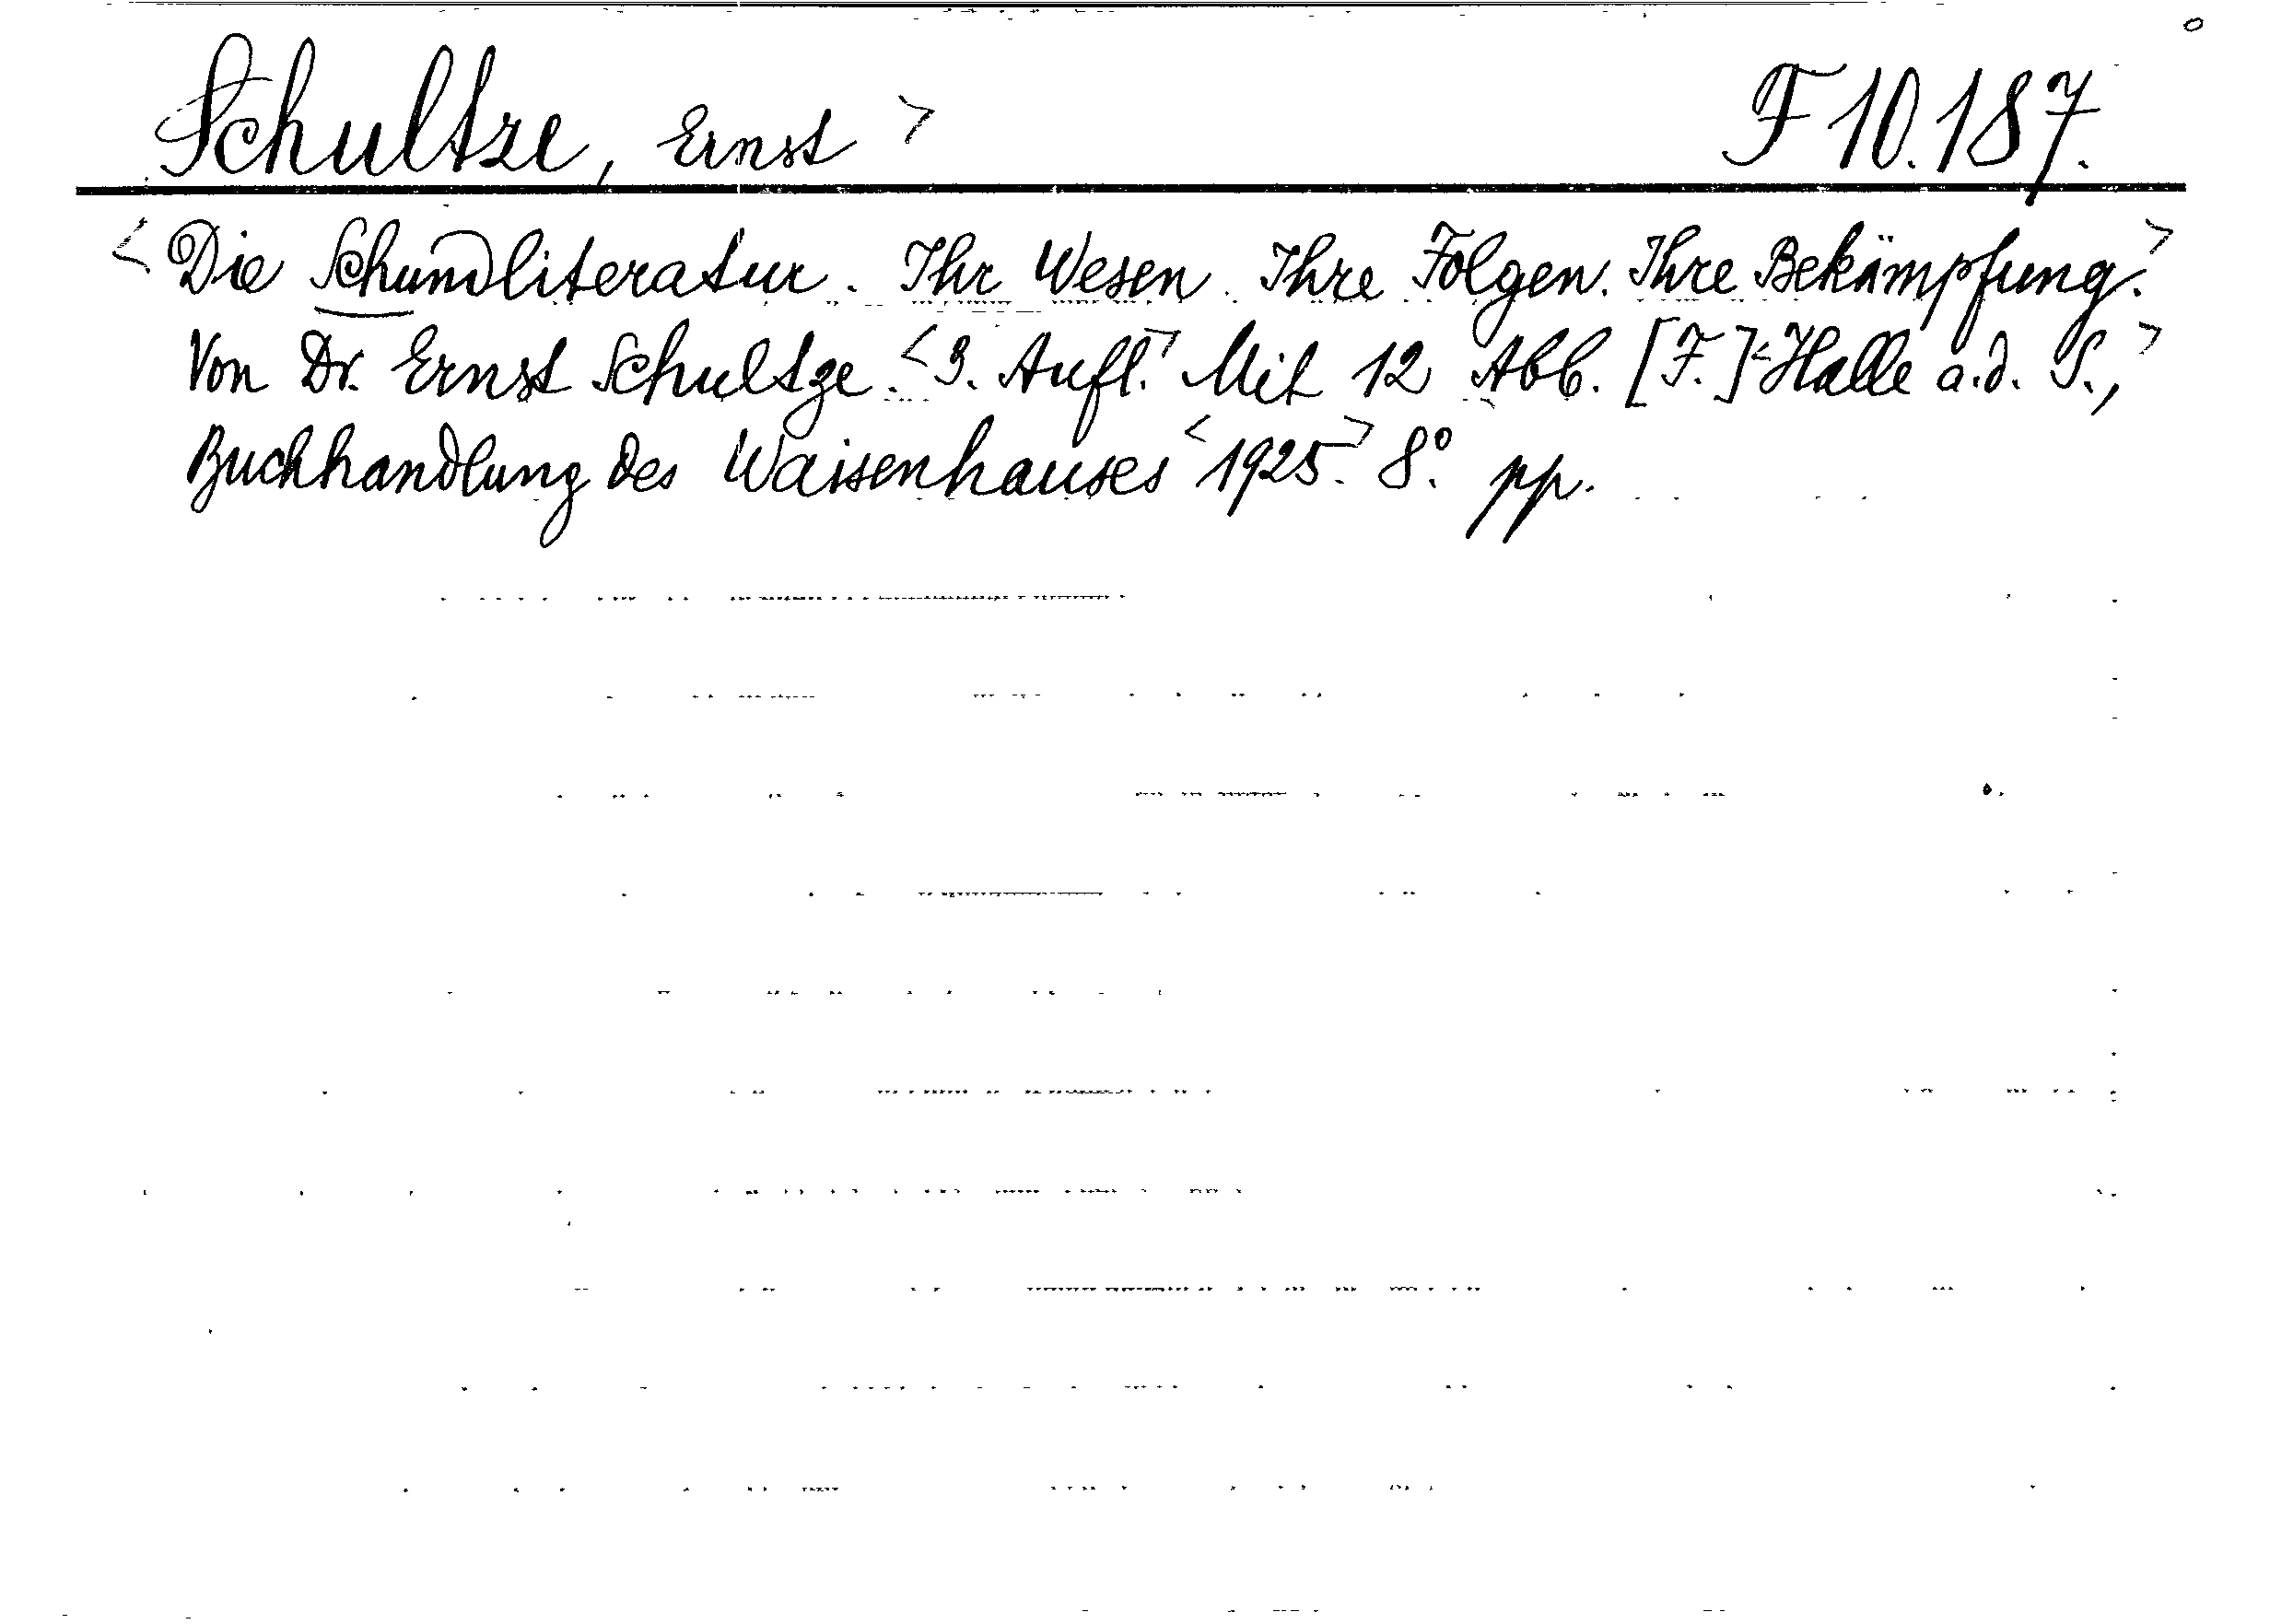 Schultze, Ernst > F 10.187.
< Die Schundliteratur. Ihr Wesen. Ihre Folgen. Ihre Bekämpfung. >
Von Dr. Ernst Schultze. < 3. Aufl. > Mit 12 Abb. [F.] < Halle a.d. S., >
Buchhandlung des Waisenhauses < 1925. > 8°. pp.